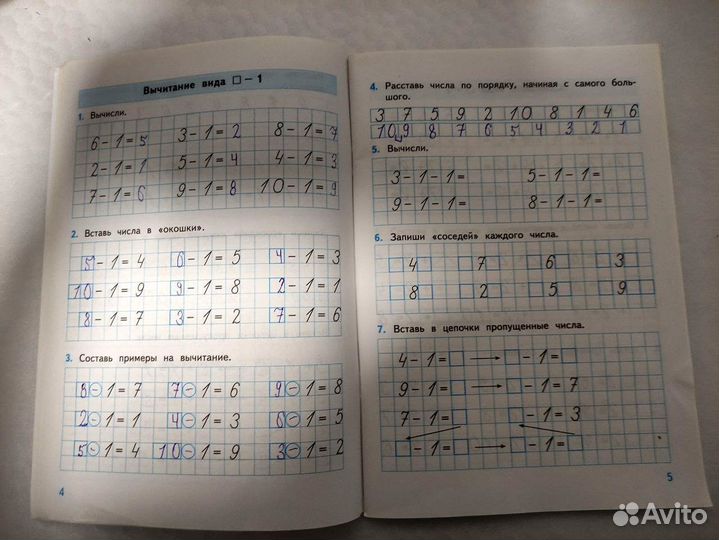 Вычитание вида □ – 1
1. Вычисли.
6 – 1 = 5 3 – 1 = 2 8 – 1 = 7
2 – 1 = 1 5 – 1 = 4 4 – 1 = 3
7 – 1 = 6 9 – 1 = 8 10 – 1 = 9
2. Вставь числа в «окошки».
5 – 1 = 4 6 – 1 = 5 4 – 1 = 3
10 – 1 = 9 9 – 1 = 8 2 – 1 = 1
8 – 1 = 7 3 – 1 = 2 7 – 1 = 6
3. Составь примеры на вычитание.
8 – 1 = 7 7 – 1 = 6 9 – 1 = 8
2 – 1 = 1 4 – 1 = 3 6 – 1 = 5
5 – 1 = 4 10 – 1 = 9 3 – 1 = 2
4
4. Расставь числа по порядку, начиная с самого боль-
шого.
3 7 5 9 2 10 8 1 4 6
10 9 8 7 6 5 4 3 2 1
5. Вычисли.
3 – 1 – 1 = 5 – 1 – 1 =
9 – 1 – 1 = 8 – 1 – 1 =
6. Запиши «соседей» каждого числа.
□ 4 □ □ 7 □ □ 6 □ □ 3 □
□ 8 □ □ 2 □ □ 5 □ □ 9 □
7. Вставь в цепочки пропущенные числа.
4 – 1 = □ → □ – 1 = □
9 – 1 = □ → □ – 1 = 7
7 – 1 = □ □ – 1 = 3
□ – 1 = □ → □ – 1 = □
5
Avito